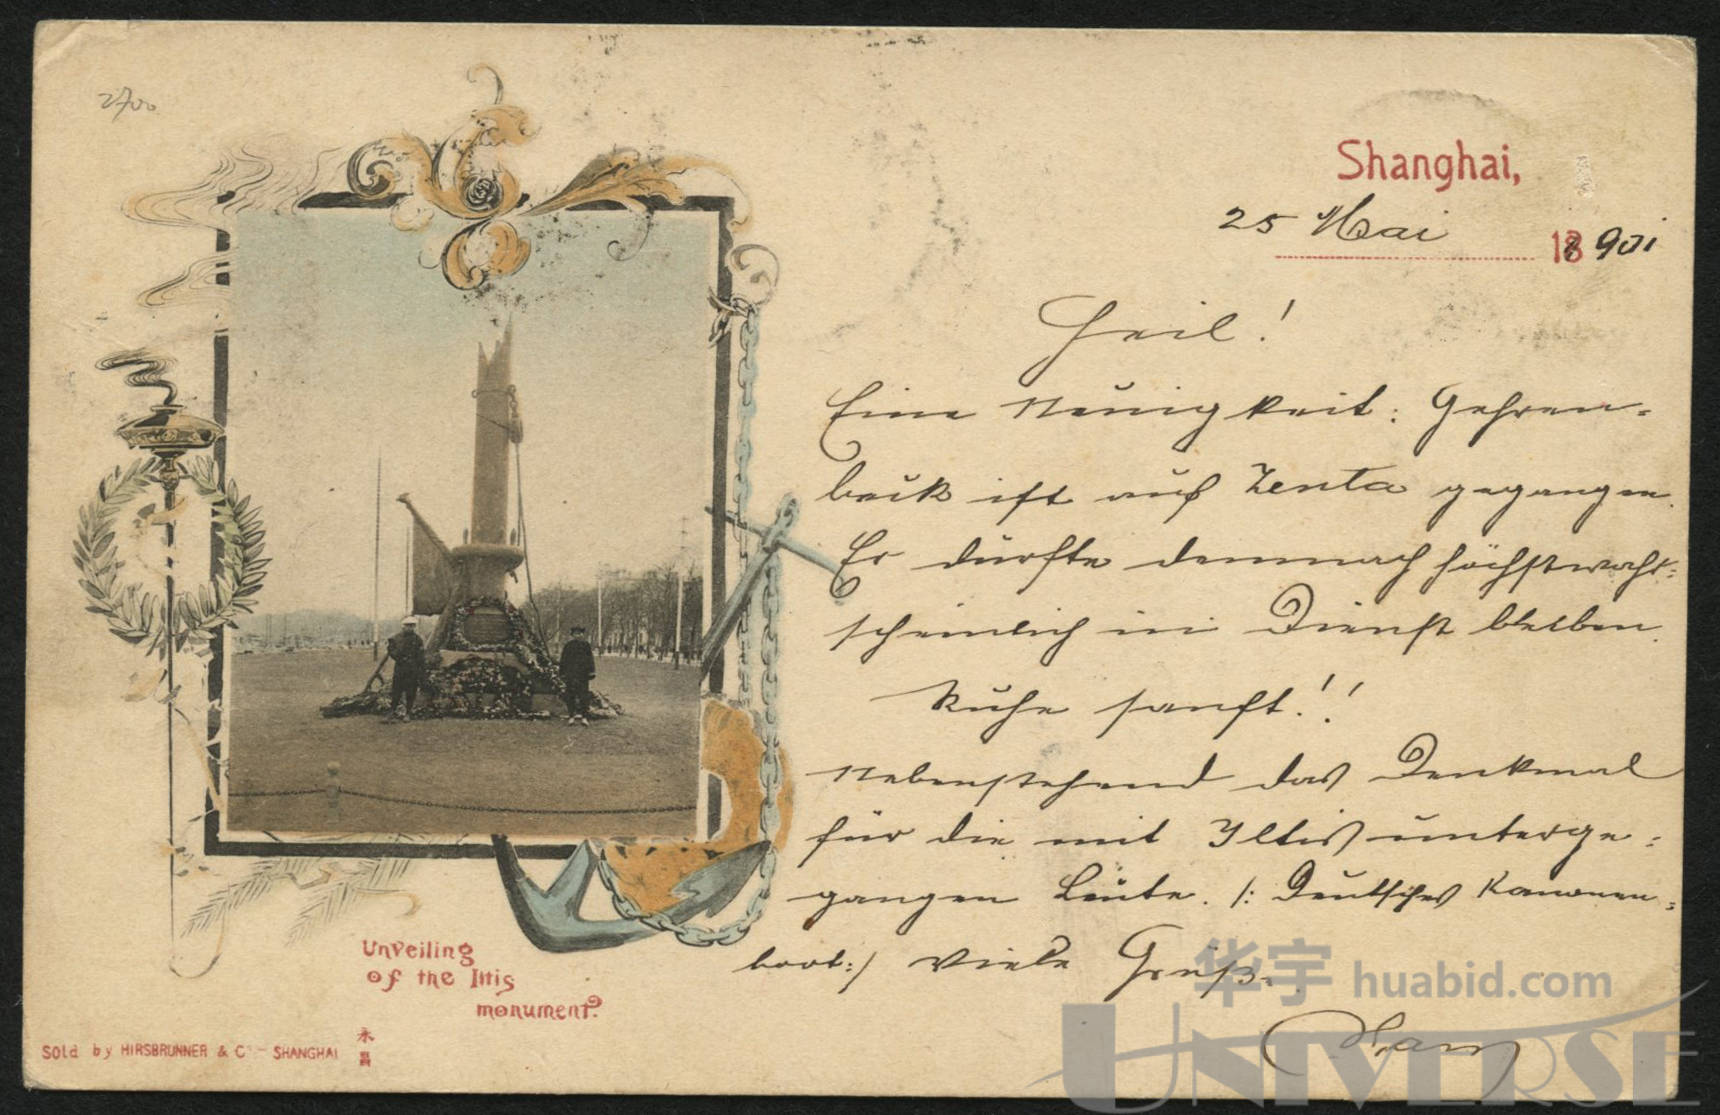 2700
Shanghai,
25 Mai 18901
Heil!
Eine Neuigkeit: Gehren-
beck ist auf Zenta gegangen.
Er dürfte demnach höchstwahr-
scheinlich im Dienst bleiben.
Ruhe sanft!!
Nebenstehend das Denkmal
für die mit Iltis unterge-
gangen Leute. /: Deutsches Kanonen-
boot:/ Viele Grüße
Unveiling
of the Iltis
monument.
Sold by HIRSBRUNNER & Co - SHANGHAI
永昌
华宇 huabid.com
UNIVERSE